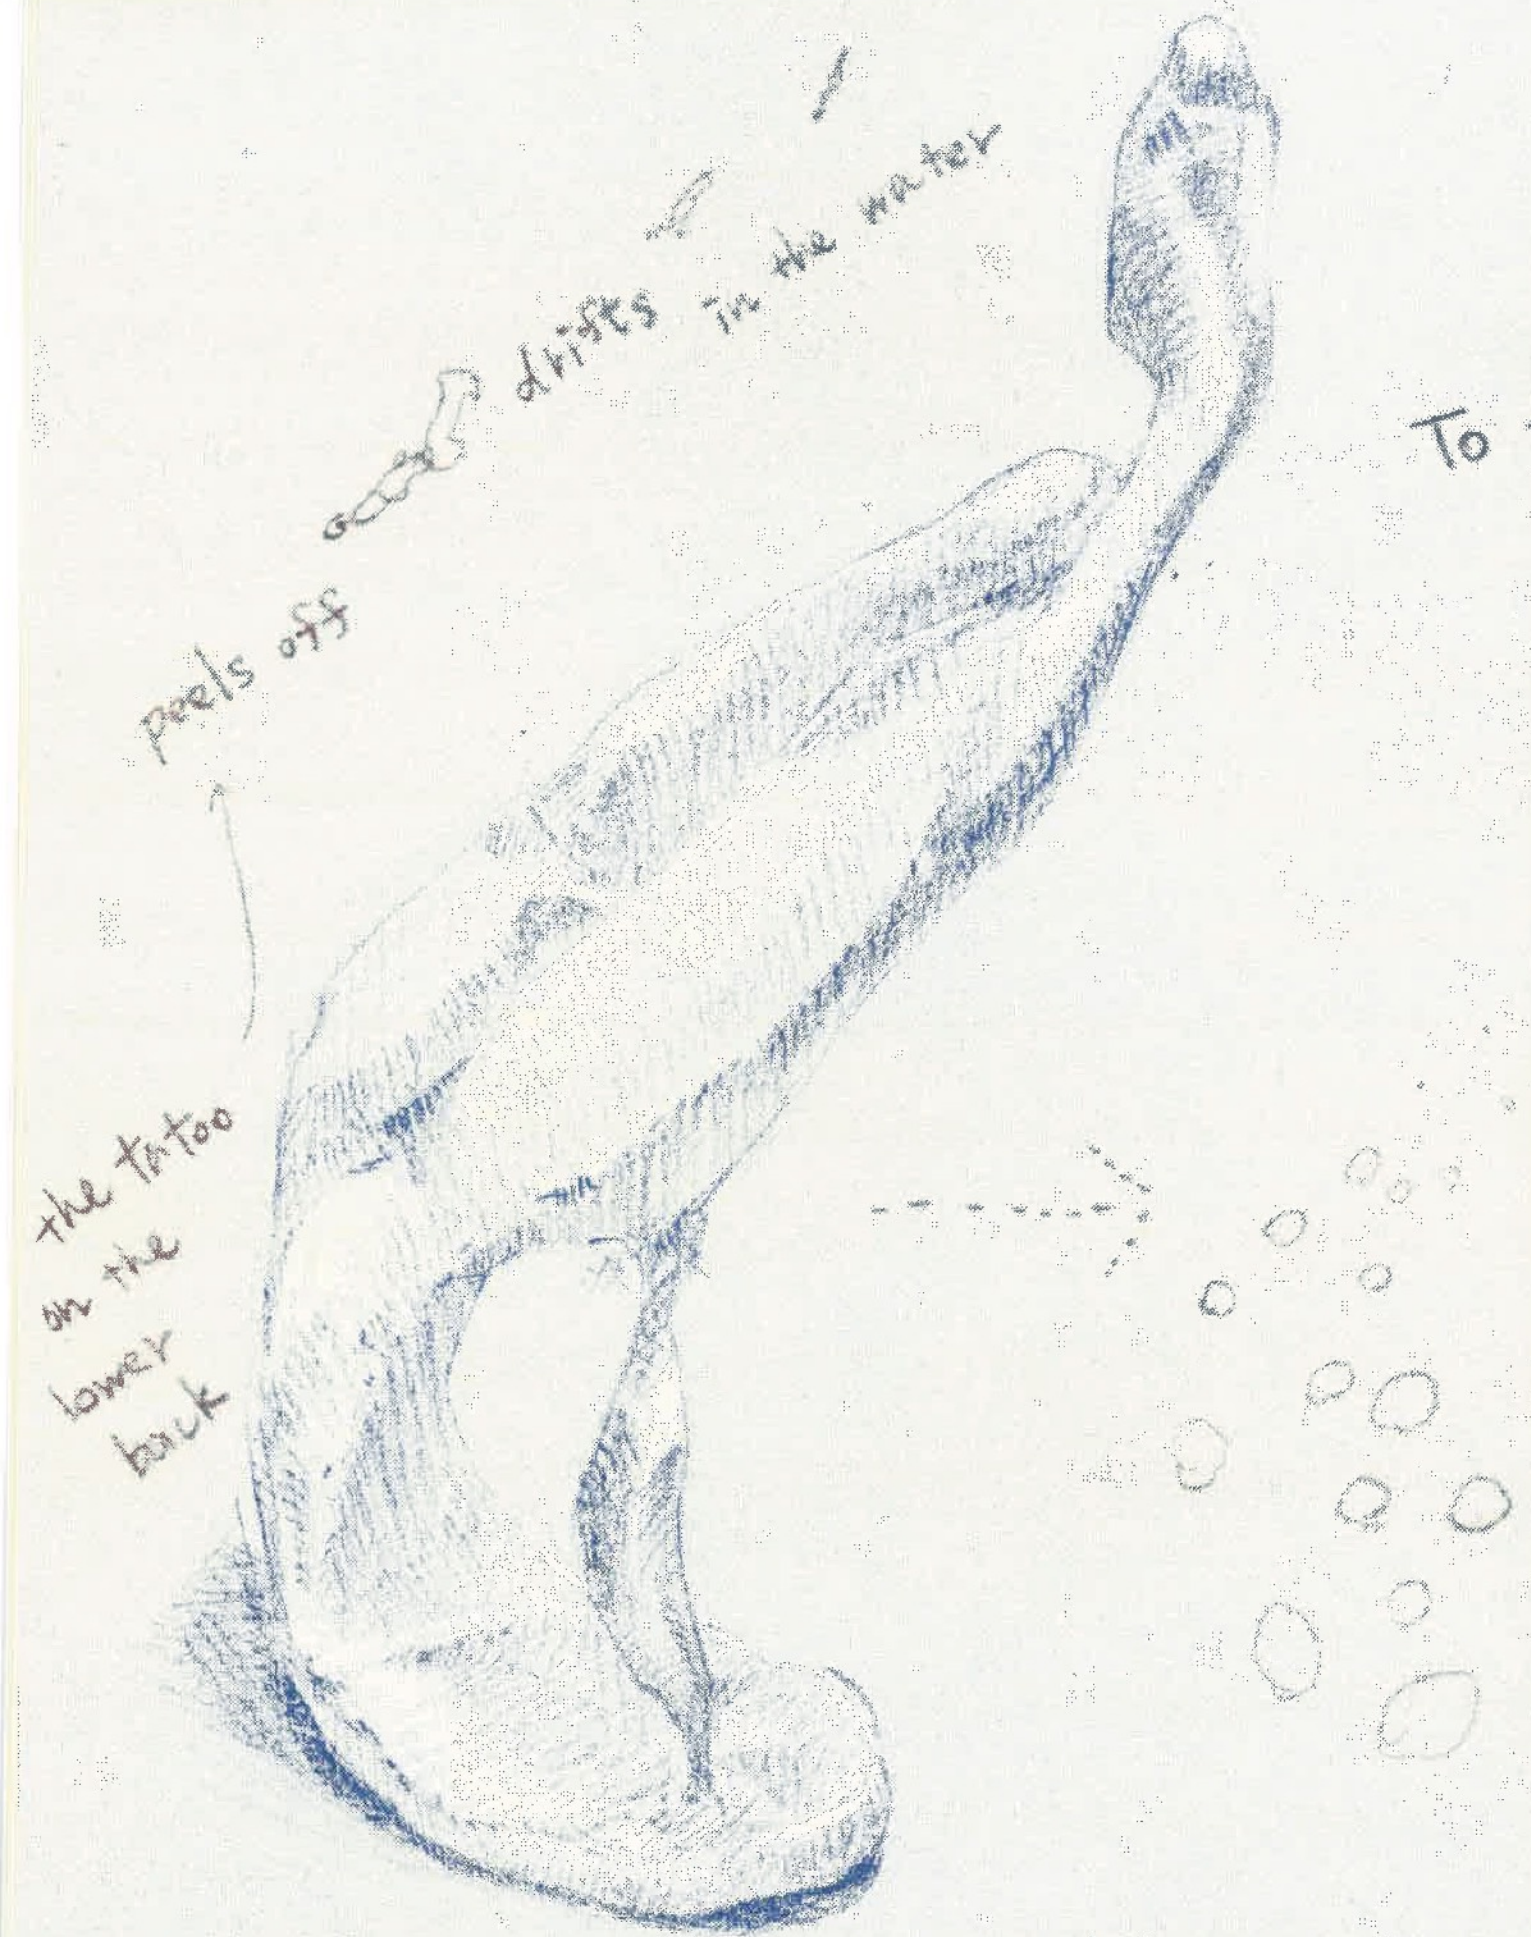 the tatoo
on the
lower
back
peels off
drifts in the water
To